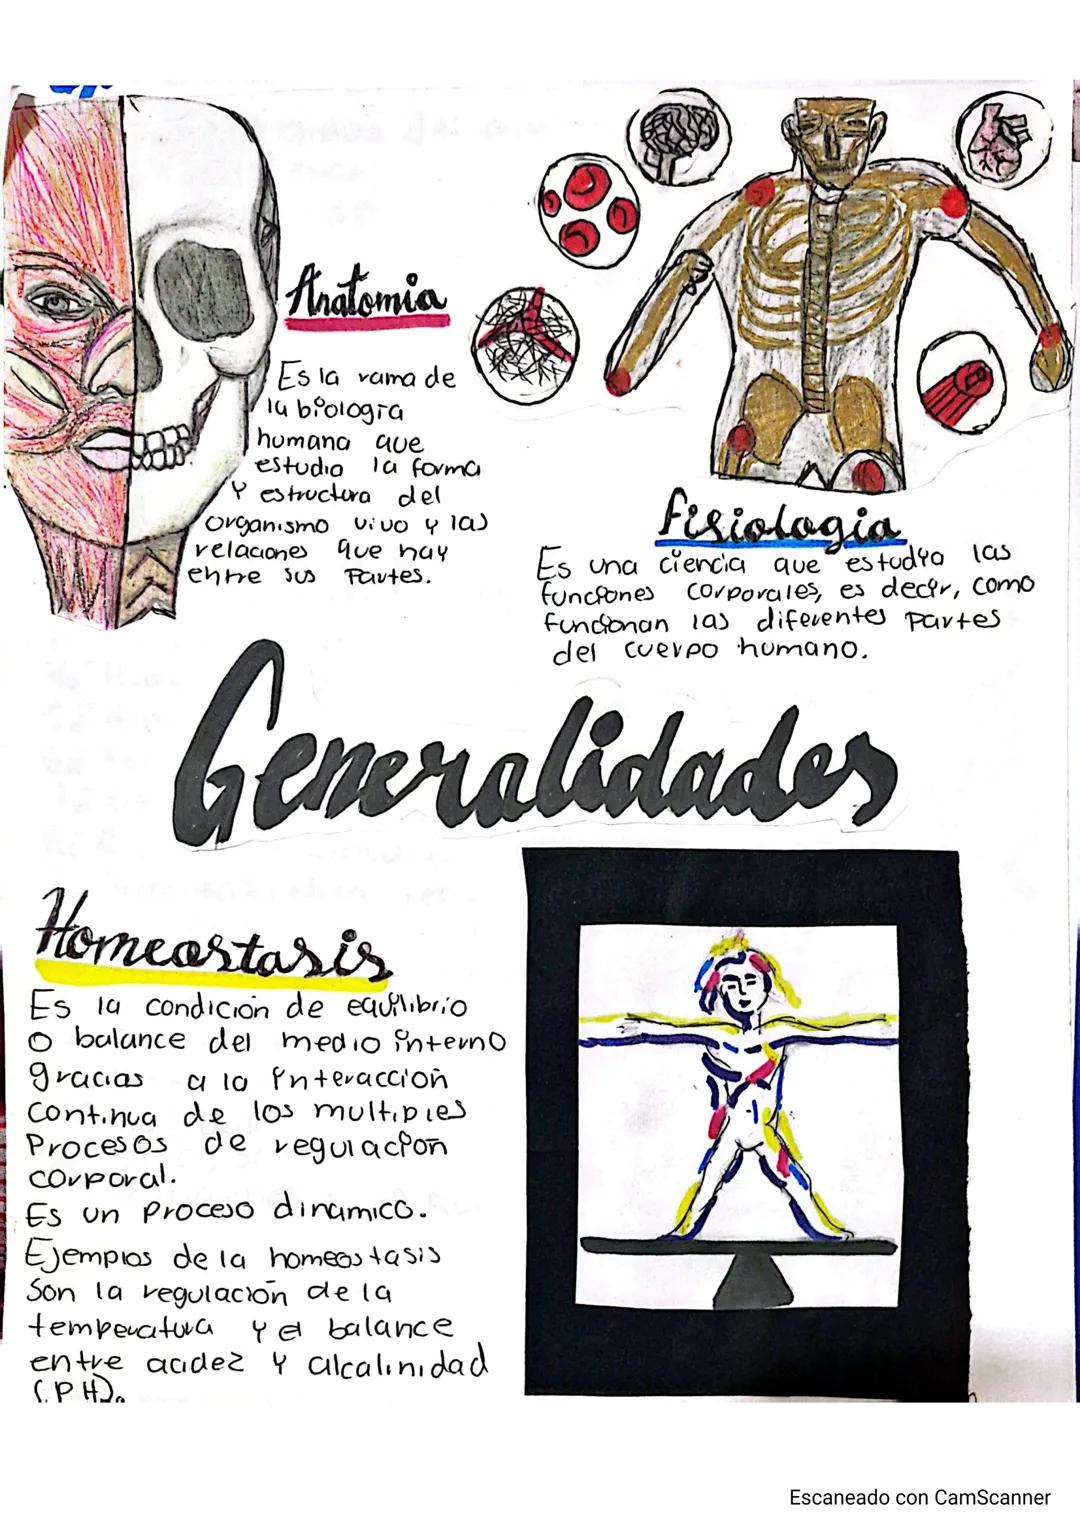 Anatomia
Es la rama de
la biología
humana que
estudio la forma
y estructura del
organismo vivo y las
relaciones que hay
entre sus Partes.
Fisiologia
Es una ciencia que estudia las
funciones corporales, es decir, como
funcionan las diferentes partes
del cuerpo humano.
Generalidades
Homeostasis
Es la condición de equilibrio
o balance del medio interno
gracias a la interacción
continua de los multiples
Procesos de regulación
corporal.
Es un Proceso dinamico.
Ejemplos de la homeostasis
Son la regulación de la
temperatura y el balance
entre acidez y alcalinidad
(PH).
Escaneado con CamScanner